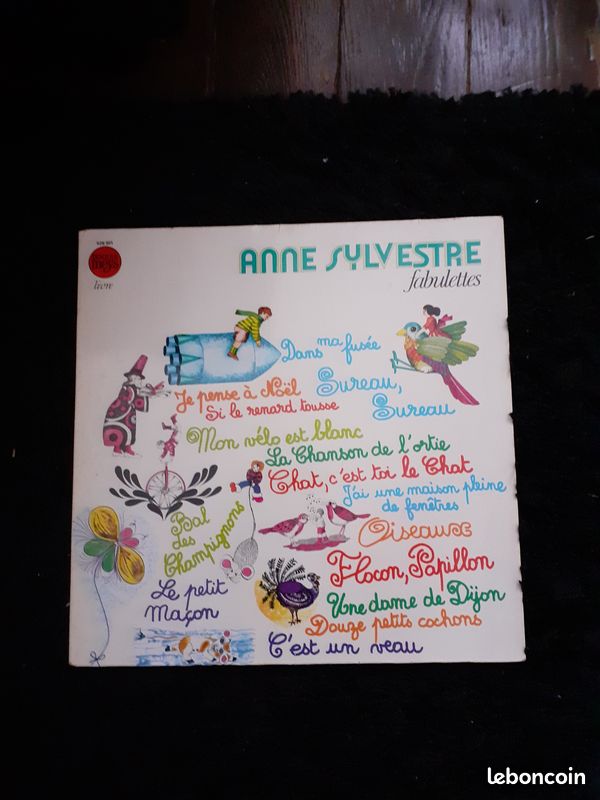 ANNE SYLVESTRE
fabulettes
livre
Dans ma fusée
Je pense à Noël
Sureau,
Sureau
Si le renard tousse
Mon vélo est blanc
La Chanson de l'ortie
Chat, c'est toi le Chat
J'ai une maison pleine
de fenêtres
Bal
des
Champignons
Oiseaux
Flocon, Papillon
Le petit
Maçon
Une dame de Dijon
Douze petits cochons
C'est un veau
leboncoin